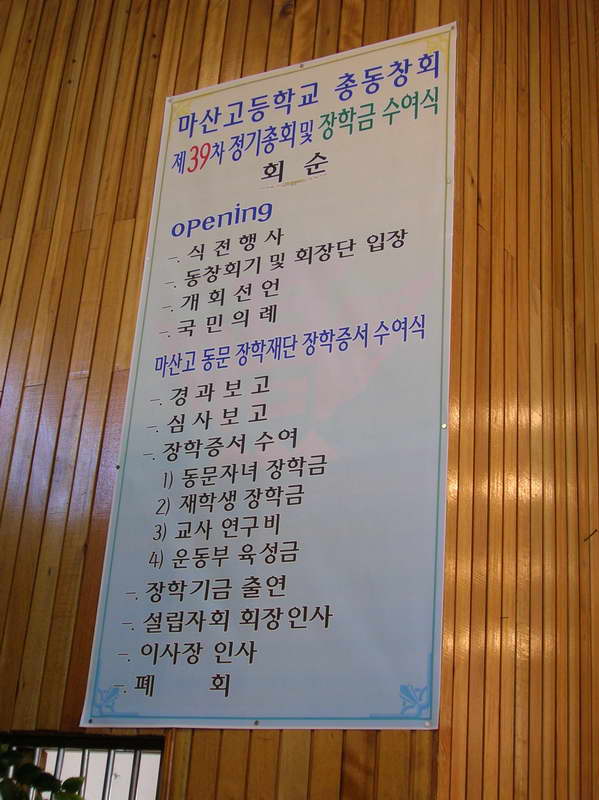 마산고등학교 총동창회
제39차 정기총회 및 장학금 수여식
회 순
opening
-. 식 전 행 사
-. 동창회기 및 회장단 입장
-. 개 회 선 언
-. 국 민 의 례
마산고 동문 장학재단 장학증서 수여식
-. 경 과 보 고
-. 심 사 보 고
-. 장학증서 수여
1) 동문자녀 장학금
2) 재학생 장학금
3) 교사 연구비
4) 운동부 육성금
-. 장학기금 출연
-. 설립자회 회장인사
-. 이사장 인사
-. 폐 회